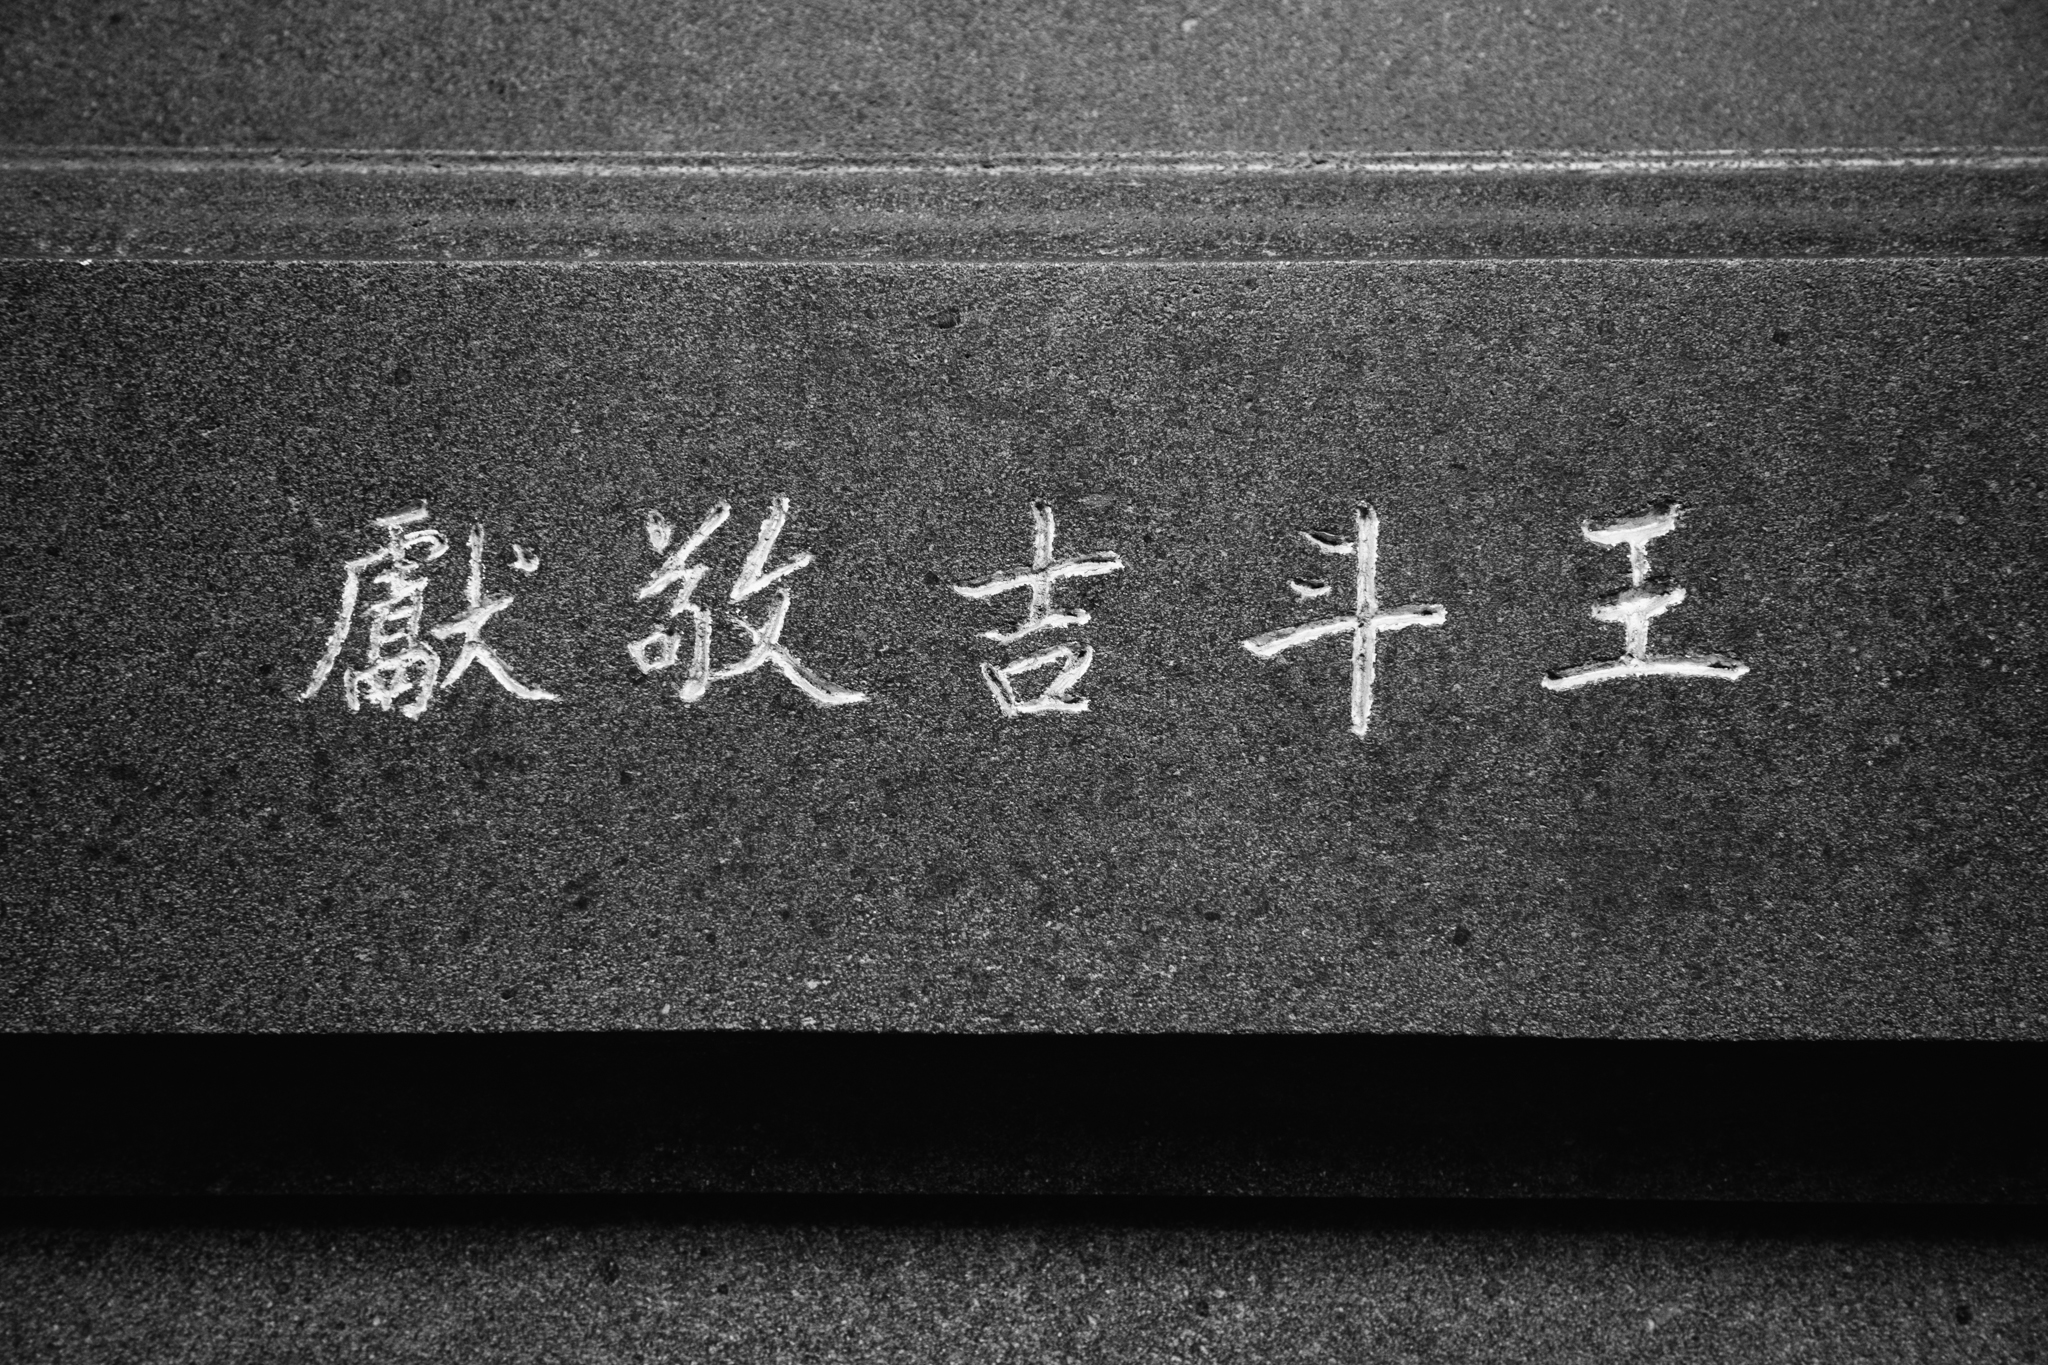 王斗吉敬獻